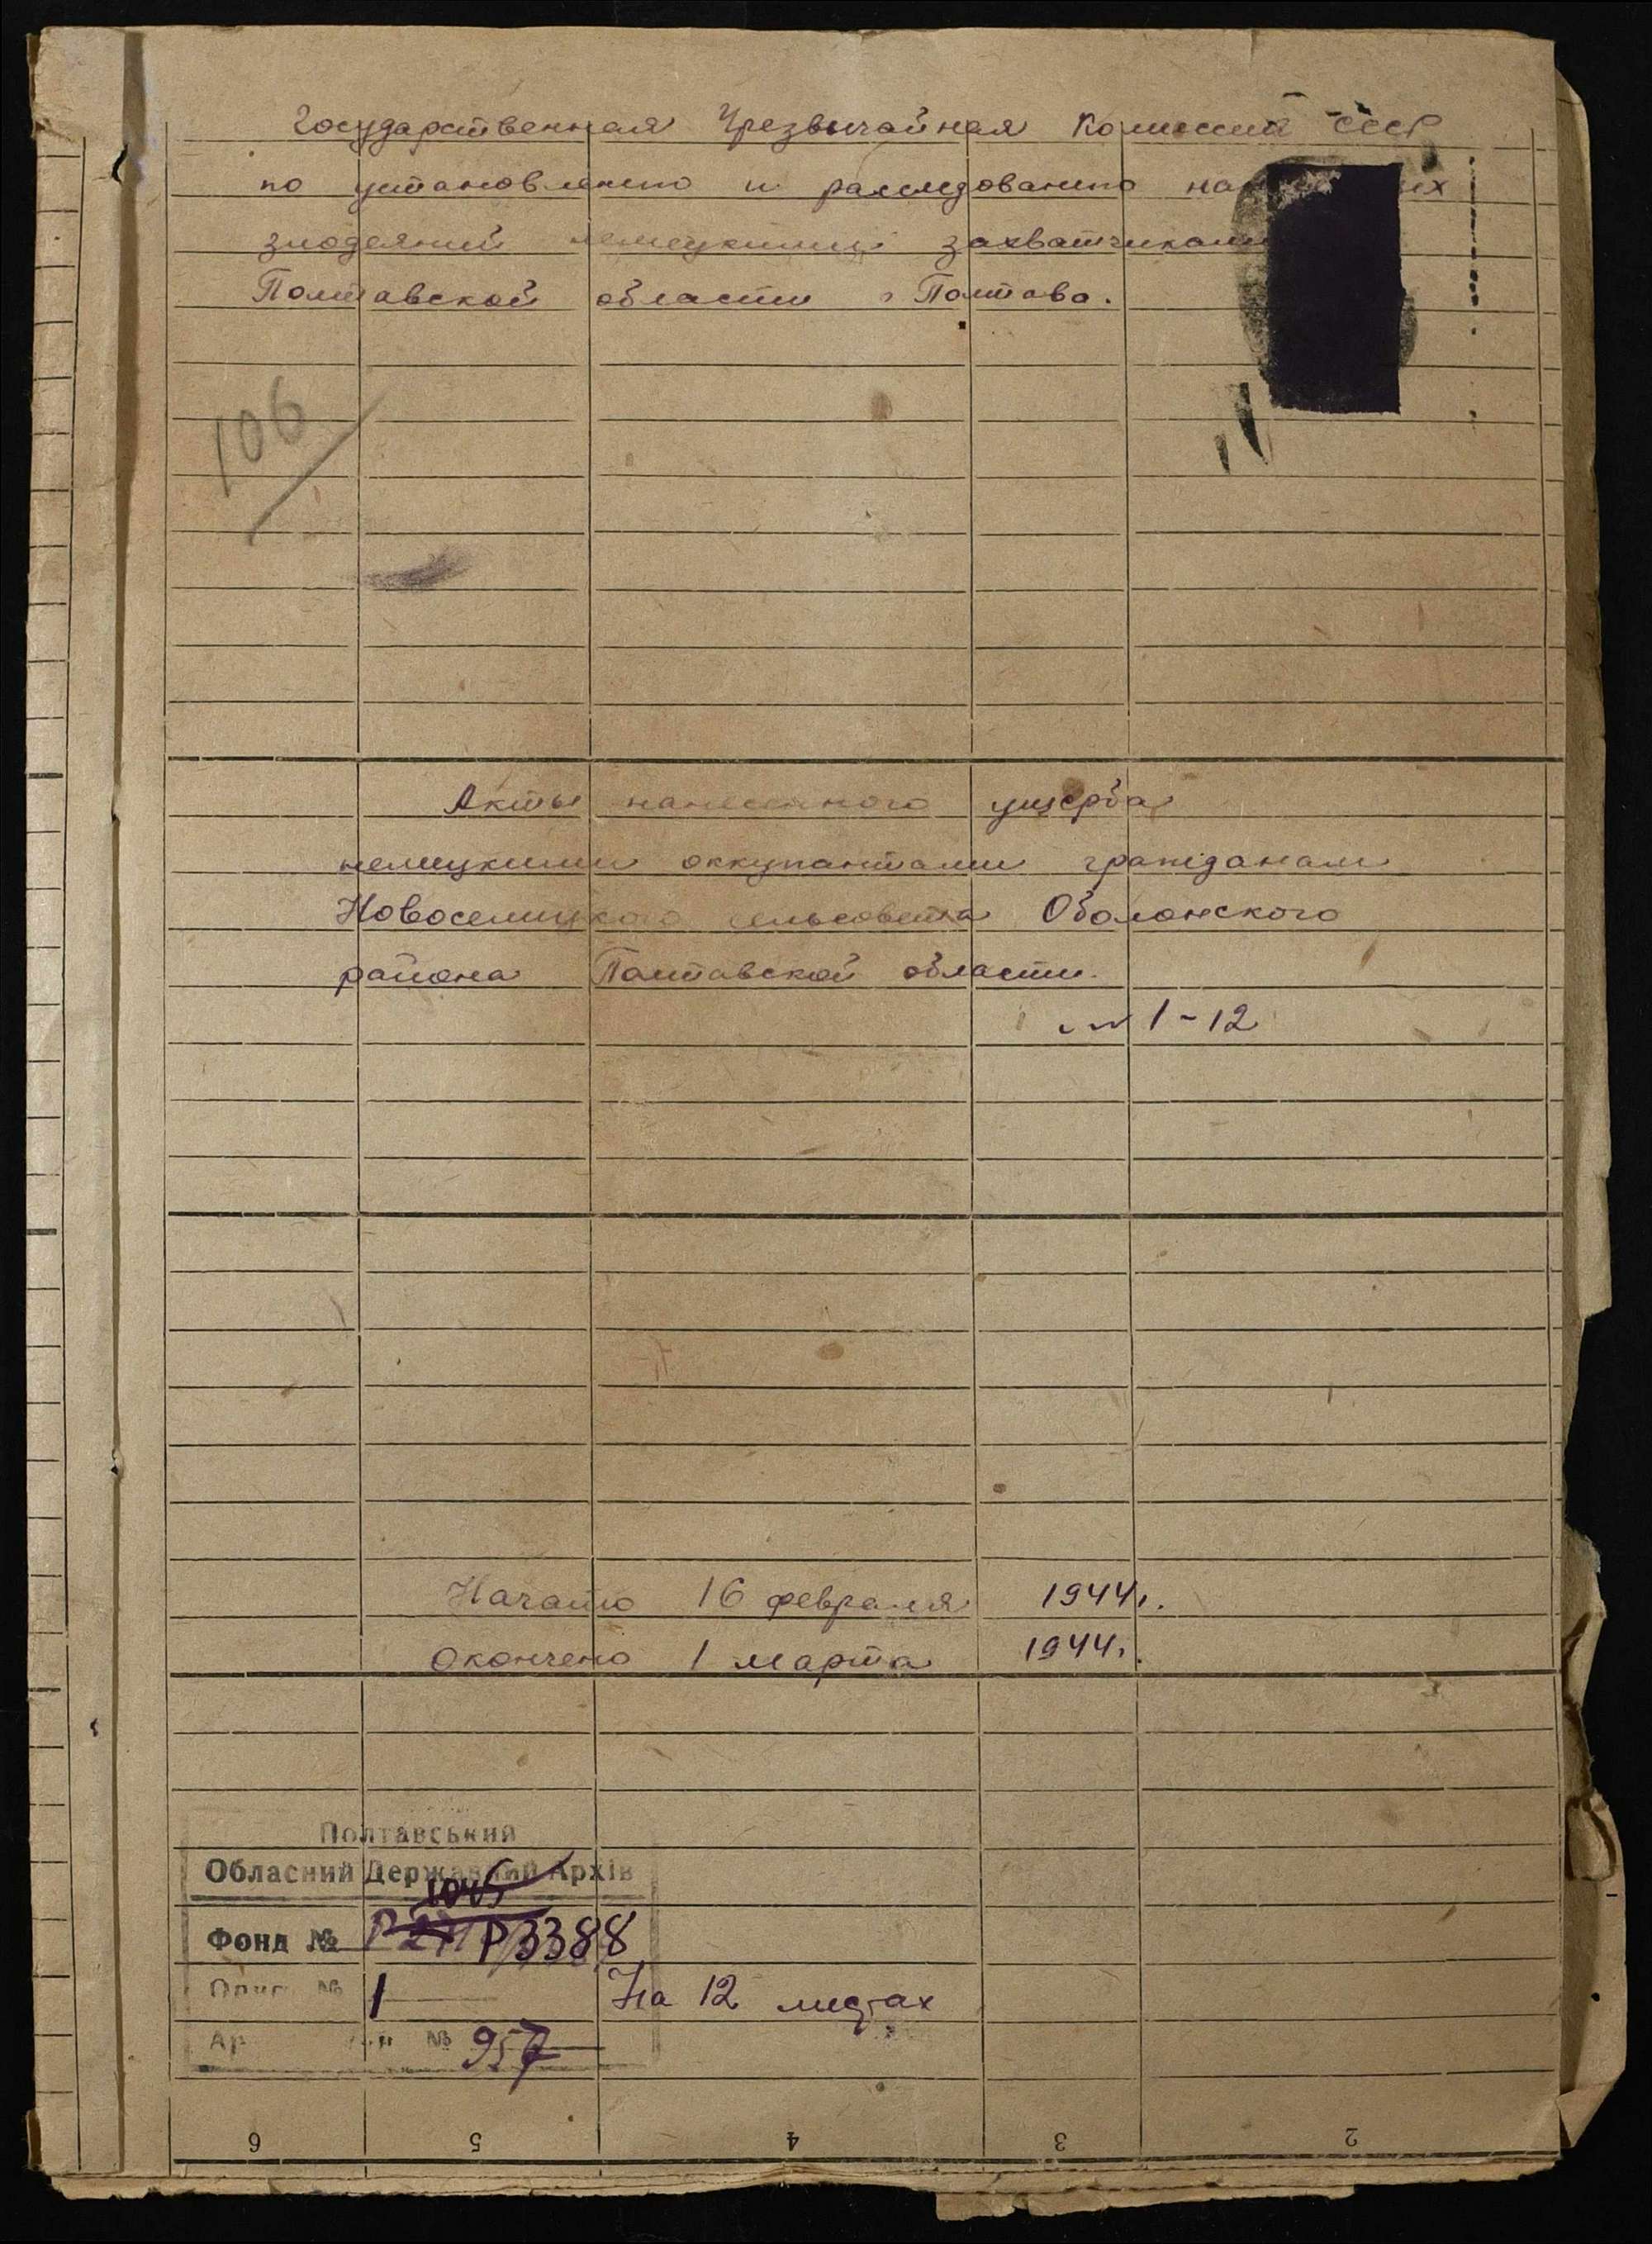 Государственная Чрезвычайная Комиссия СССР
по установлению и расследованию
злодеяний немецкими захватчиками
Полтавской области г Полтава.
106
Акты нанесенного ущерба
немецкими оккупантами гражданам
Новоселицкого сельсовета Оболонского
района Полтавской области.
1-12
Начато 16 февраля 1944г.
Окончено 1 марта 1944г.
Полтавський
Обласний Державний Архів
1045
Фонд № Р3388
Опис № 1
На 12 листах
№ 957
6 5 4 3 2